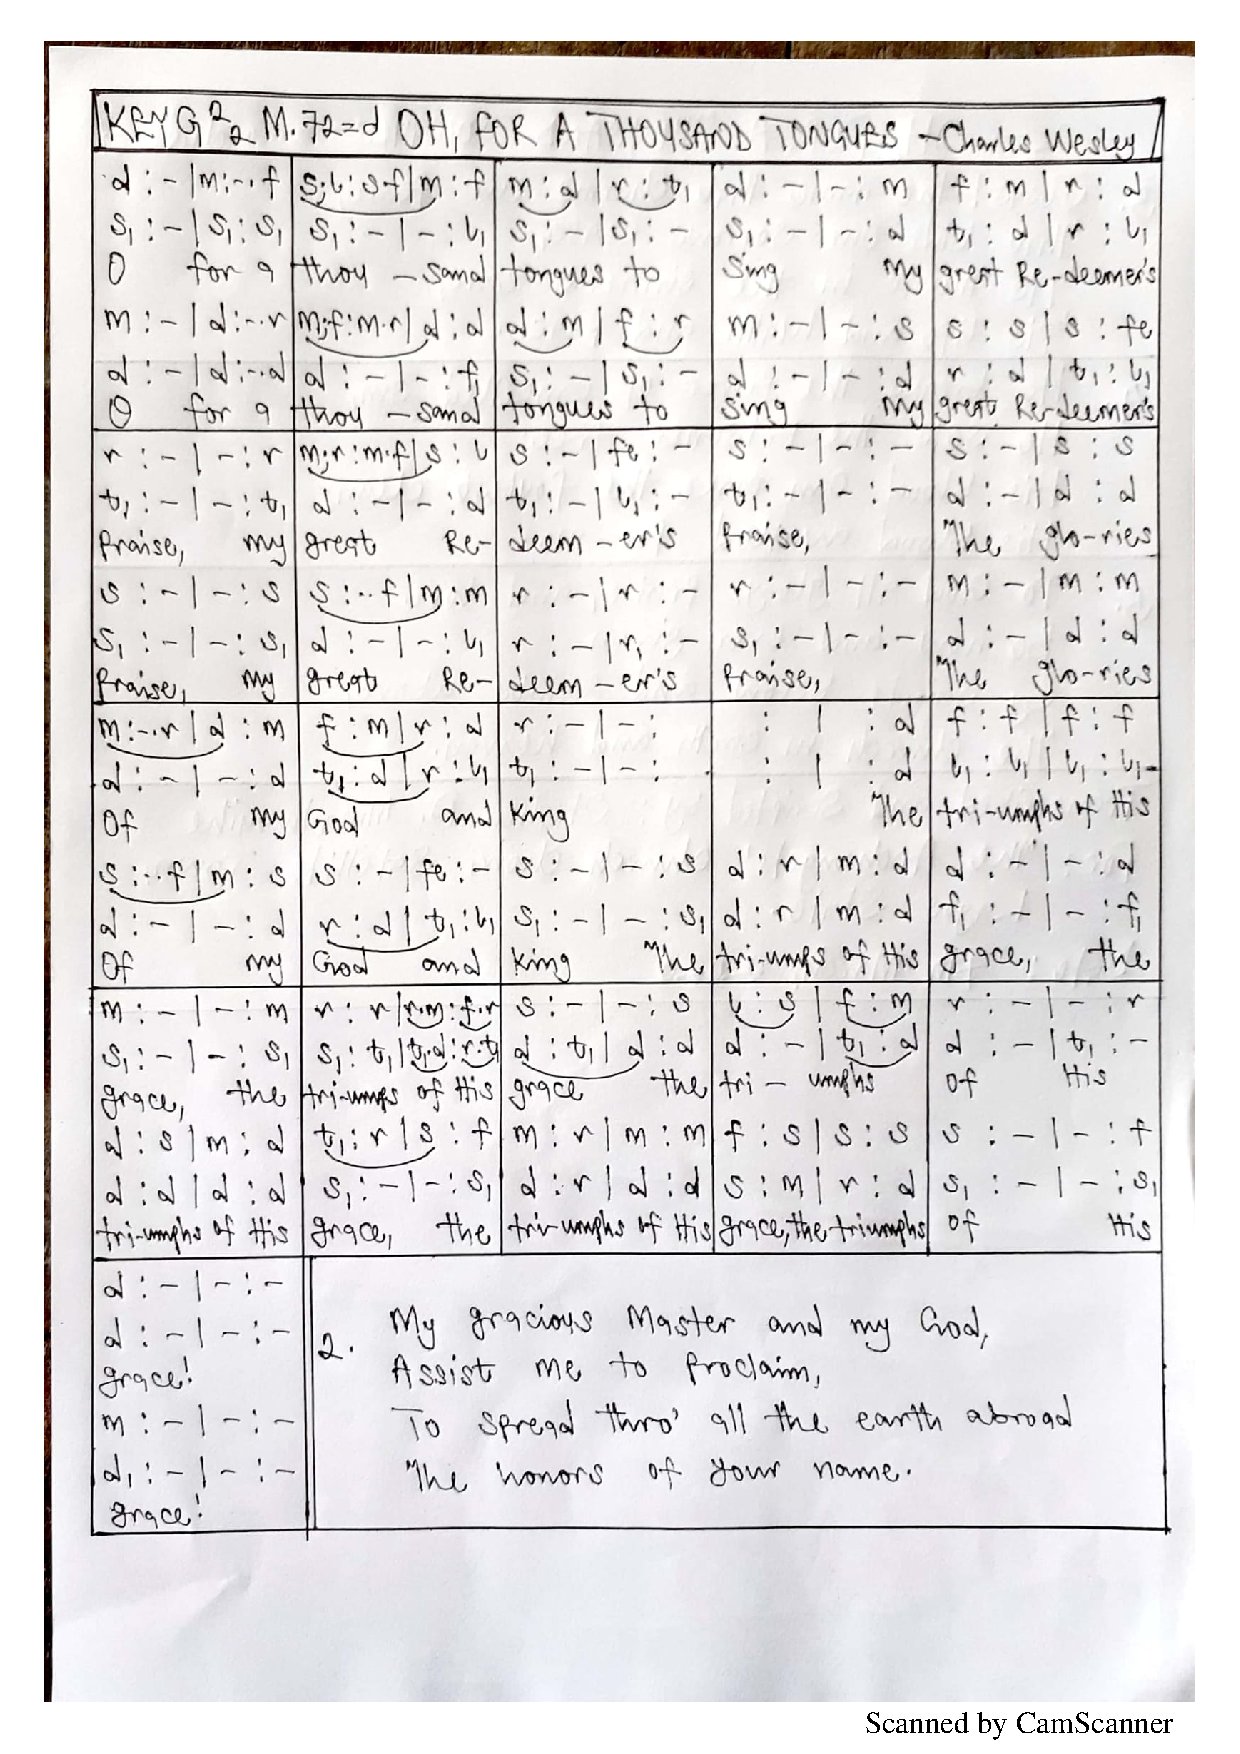 KEY G 2/2 M.72=d OH, FOR A THOUSAND TONGUES - Charles Wesley
d : - | m : -. f | s.l : s.f | m : f | m : d | r : t₁ | d : - | - : m | f : m | r : d
s₁ : - | s₁ : s₁ | s₁ : - | - : l₁ | s₁ : - | s₁ : - | s₁ : - | - : d | t₁ : d | r : l₁
O for a thou - sand tongues to Sing My great Re-deemer's
m : - | d : -. r | m.f : m.r | d : d | d : m | f : r | m : - | - : s | s : s | s : fe
d : - | d : -. d | d : - | - : f₁ | s₁ : - | s₁ : - | d : - | - : d | r : d | t₁ : l₁
O for a thou - sand tongues to Sing My great Re-deemer's
r : - | - : r | m.r : m.f | s : l | s : - | fe : - | s : - | - : - | s : - | s : s
t₁ : - | - : t₁ | d : - | - : d | t₁ : - | l₁ : - | t₁ : - | - : - | d : - | d : d
Praise, my great Re- deem - er's Praise, The glo-ries
s : - | - : s | s : -. f | m : m | r : - | r : - | r : - | - : - | m : - | m : m
s₁ : - | - : s₁ | d : - | - : l₁ | r : - | r₁ : - | s₁ : - | - : - | d : - | d : d
Praise, my great Re- deem - er's Praise, The glo-ries
m : -. r | d : m | f : m | r : d | r : - | - : | : | : d | f : f | f : f
d : - | - : d | t₁ : d | r : l₁ | t₁ : - | - : . | : | : d | l₁ : l₁ | l₁ : l₁-
Of my God and King The tri-umphs of His
s : -. f | m : s | s : - | fe : - | s : - | - : s | d : r | m : d | d : - | - : d
d : - | - : d | r : d | t₁ : l₁ | s₁ : - | - : s₁ | d : r | m : d | f₁ : - | - : f₁
Of my God and King The tri-umps of His grace, the
m : - | - : m | r : r | r.m : f.r | s : - | - : s | l : s | f : m | r : - | - : r
s₁ : - | - : s₁ | s₁ : t₁ | t₁.d : r.t₁ | d : t₁ | d : d | d : - | t₁ : d | d : - | t₁ : -
grace, the tri-umps of His grace the tri - umphs Of His
d : s | m : d | t₁ : r | s : f | m : r | m : m | f : s | s : s | s : - | - : f
d : d | d : d | s₁ : - | - : s₁ | d : r | d : d | s : m | r : d | s₁ : - | - : s₁
tri-umphs of His grace, the tri-umphs of His grace, the triumphs of His
d : - | - : -
d : - | - : -
grace!
m : - | - : -
d₁ : - | - : -
grace!
2. My gracious Master and my God,
Assist me to Proclaim,
To spread thro' all the earth abroad
The honors of your name.
Scanned by CamScanner